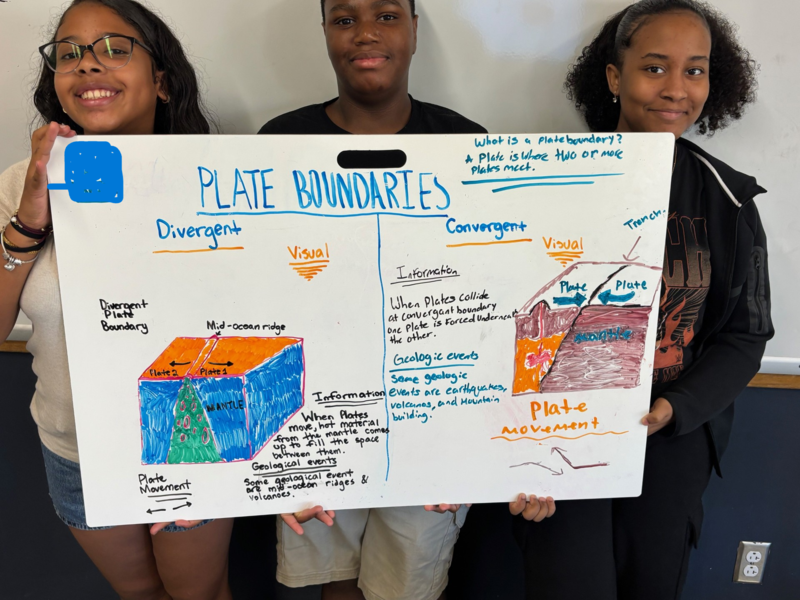 What is a Plate boundary?
A Plate is where two or more
plates meet.
PLATE BOUNDARIES
Divergent
Visual
Divergent
Plate
Boundary
Mid-ocean ridge
Plate 2
Plate 1
MANTLE
Information
When Plates
move, hot material
from the mantle comes
up to fill the space
between them.
Geological events
Some geological event
are mid-ocean ridges &
volcanoes.
Plate
Movement
Convergent
Visual
Trench.
Information
When Plates collide
at Convergant boundary
one Plate is Forced underneath
the other.
Geologic events
Some geologic
events are earthquakes,
volcanos, and Mountain
building.
Plate
Plate
Plate
MOVEMENT